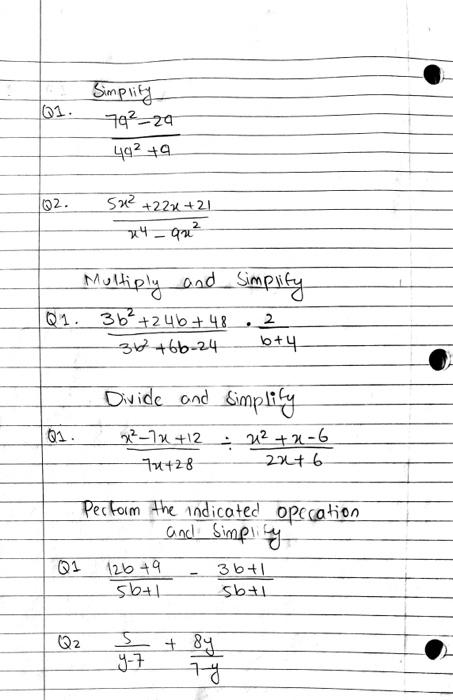 Simplify
Q1. 7a²-2a
4a²+a
Q2. 5x²+22x+21
x4-9x²
Multiply and Simplify
Q1. 3b²+24b+48 . 2
3b²+6b-24 b+4
Divide and Simplify
Q1. x²-7x+12 ÷ x²+x-6
7x+28 2x+6
Perform the indicated operation
and Simplify
Q1 12b+9 - 3b+1
5b+1 5b+1
Q2 5 + 8y
y-7 7-y